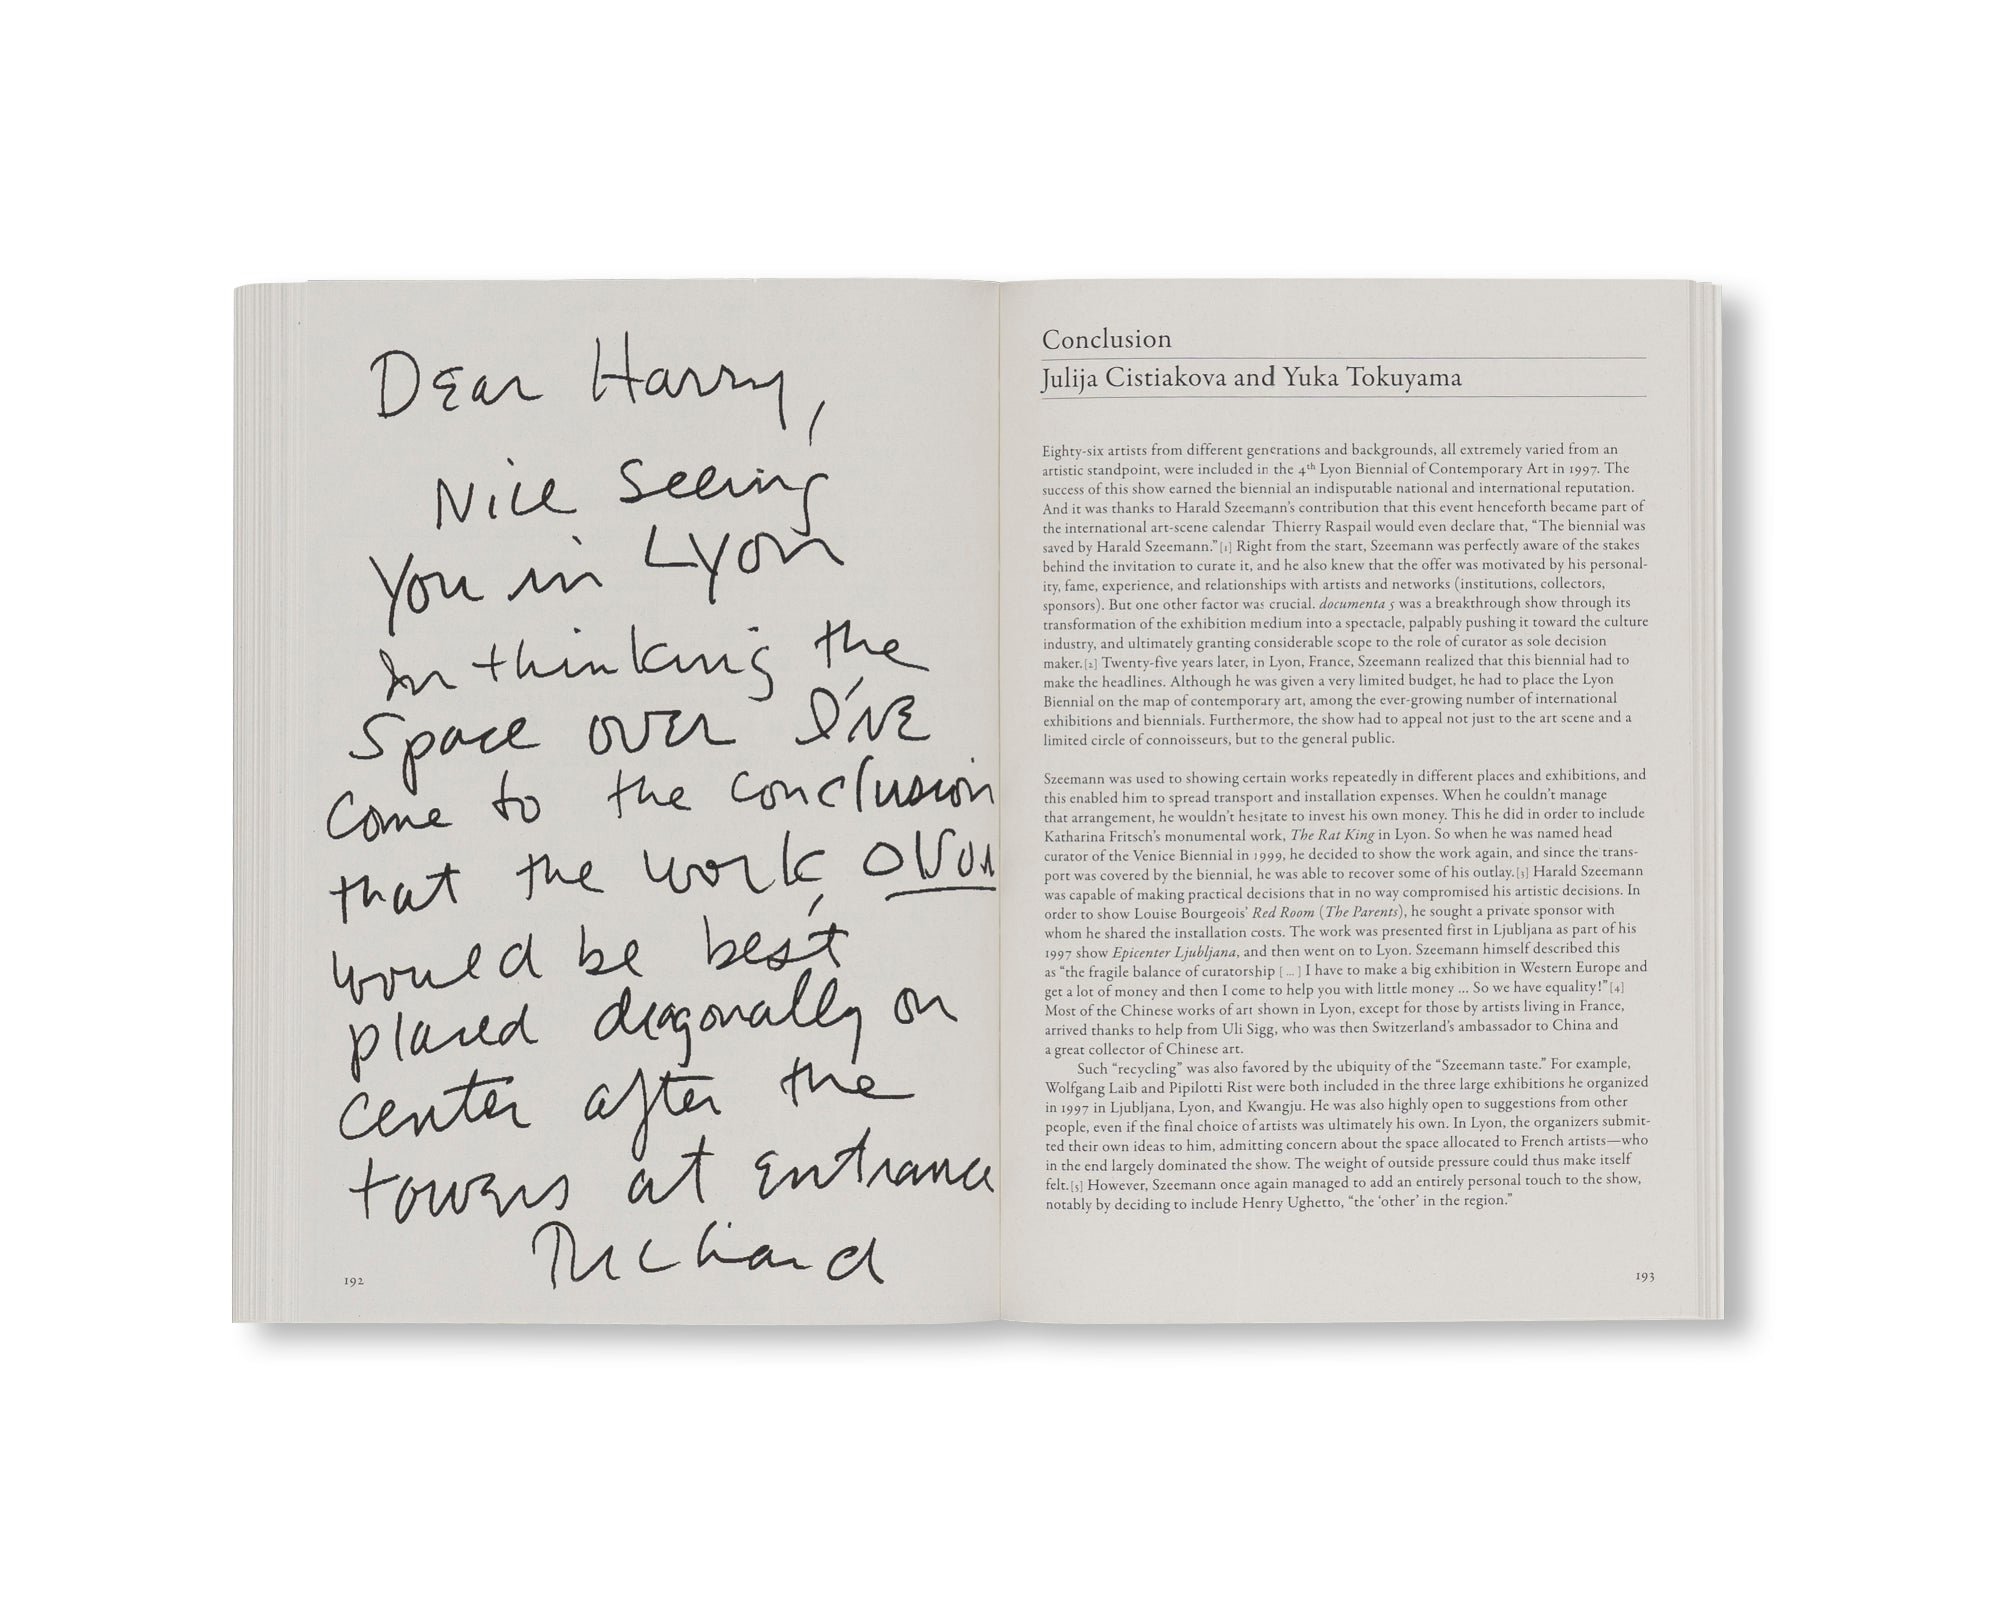 Dear Harry,
Nice seeing
you in Lyon
In thinking the
space over I've
come to the conclusion
that the work,
would be best,
placed diagonally on
center after the
towers at entrance
Richard
192
Conclusion
Julija Cistiakova and Yuka Tokuyama
Eighty-six artists from different generations and backgrounds, all extremely varied from an
artistic standpoint, were included in the 4th Lyon Biennial of Contemporary Art in 1997. The
success of this show earned the biennial an indisputable national and international reputation.
And it was thanks to Harald Szeemann's contribution that this event henceforth became part of
the international art-scene calendar Thierry Raspail would even declare that, “The biennial was
saved by Harald Szeemann.”[1] Right from the start, Szeemann was perfectly aware of the stakes
behind the invitation to curate it, and he also knew that the offer was motivated by his personal-
ity, fame, experience, and relationships with artists and networks (institutions, collectors,
sponsors). But one other factor was crucial. documenta 5 was a breakthrough show through its
transformation of the exhibition medium into a spectacle, palpably pushing it toward the culture
industry, and ultimately granting considerable scope to the role of curator as sole decision
maker.[2] Twenty-five years later, in Lyon, France, Szeemann realized that this biennial had to
make the headlines. Although he was given a very limited budget, he had to place the Lyon
Biennial on the map of contemporary art, among the ever-growing number of international
exhibitions and biennials. Furthermore, the show had to appeal not just to the art scene and a
limited circle of connoisseurs, but to the general public.
Szeemann was used to showing certain works repeatedly in different places and exhibitions, and
this enabled him to spread transport and installation expenses. When he couldn't manage
that arrangement, he wouldn't hesitate to invest his own money. This he did in order to include
Katharina Fritsch's monumental work, The Rat King in Lyon. So when he was named head
curator of the Venice Biennial in 1999, he decided to show the work again, and since the trans-
port was covered by the biennial, he was able to recover some of his outlay.[3] Harald Szeemann
was capable of making practical decisions that in no way compromised his artistic decisions. In
order to show Louise Bourgeois' Red Room (The Parents), he sought a private sponsor with
whom he shared the installation costs. The work was presented first in Ljubljana as part of his
1997 show Epicenter Ljubljana, and then went on to Lyon. Szeemann himself described this
as “the fragile balance of curatorship [ ... ] I have to make a big exhibition in Western Europe and
get a lot of money and then I come to help you with little money ... So we have equality!”[4]
Most of the Chinese works of art shown in Lyon, except for those by artists living in France,
arrived thanks to help from Uli Sigg, who was then Switzerland's ambassador to China and
a great collector of Chinese art.
Such “recycling” was also favored by the ubiquity of the “Szeemann taste.” For example,
Wolfgang Laib and Pipilotti Rist were both included in the three large exhibitions he organized
in 1997 in Ljubljana, Lyon, and Kwangju. He was also highly open to suggestions from other
people, even if the final choice of artists was ultimately his own. In Lyon, the organizers submit-
ted their own ideas to him, admitting concern about the space allocated to French artists—who
in the end largely dominated the show. The weight of outside pressure could thus make itself
felt.[5] However, Szeemann once again managed to add an entirely personal touch to the show,
notably by deciding to include Henry Ughetto, “the ‘other’ in the region.”
193